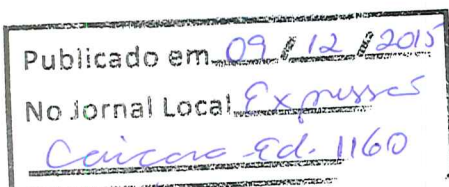 Publicado em 09/12/2015
No Jornal Local Expressão
Caiçara Ed. 1160